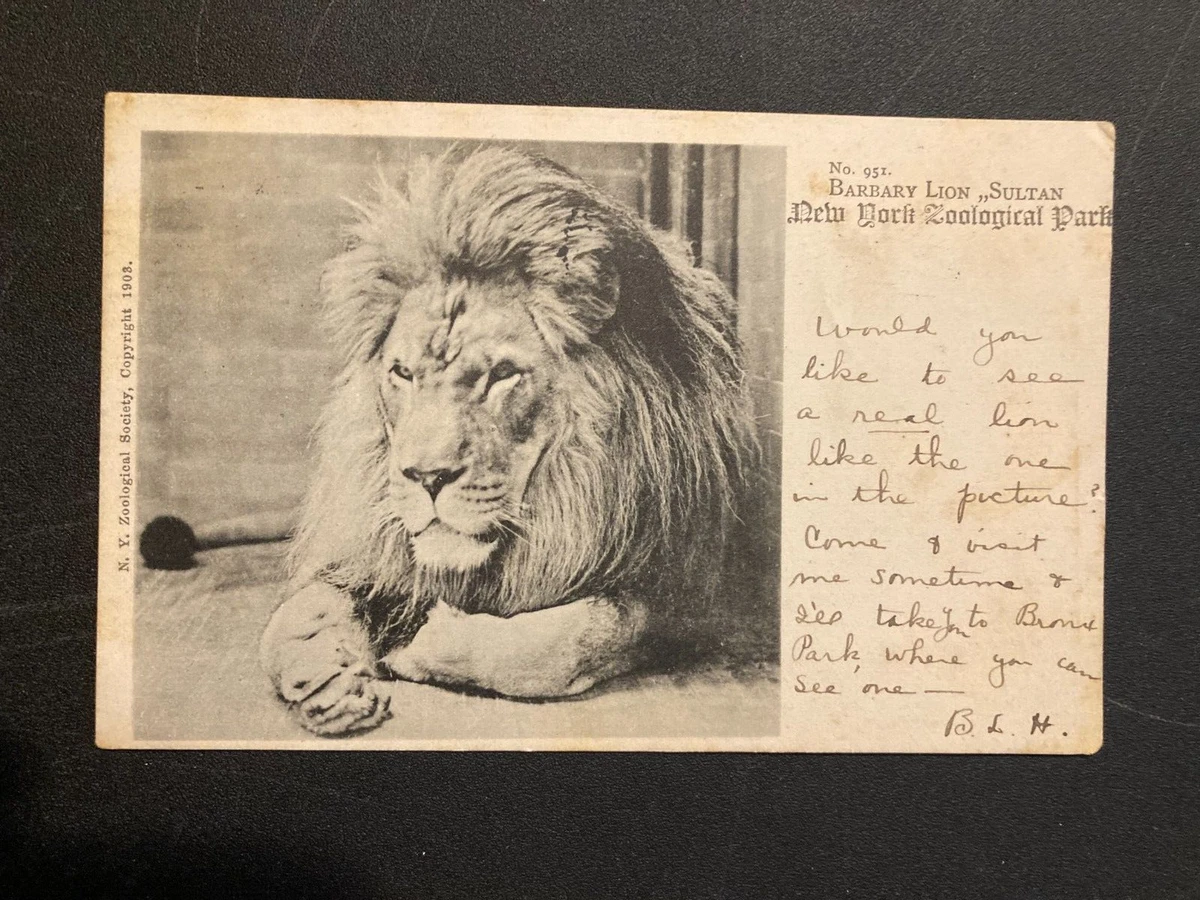 N. Y. Zoological Society, Copyright 1903.
No. 951.
BARBARY LION „SULTAN
New York Zoological Park
Would you
like to see
a real lion
like the one
in the picture?
Come & visit
me sometime &
I'll take you to Bronx
Park, where you can
see one —
B. L. H.